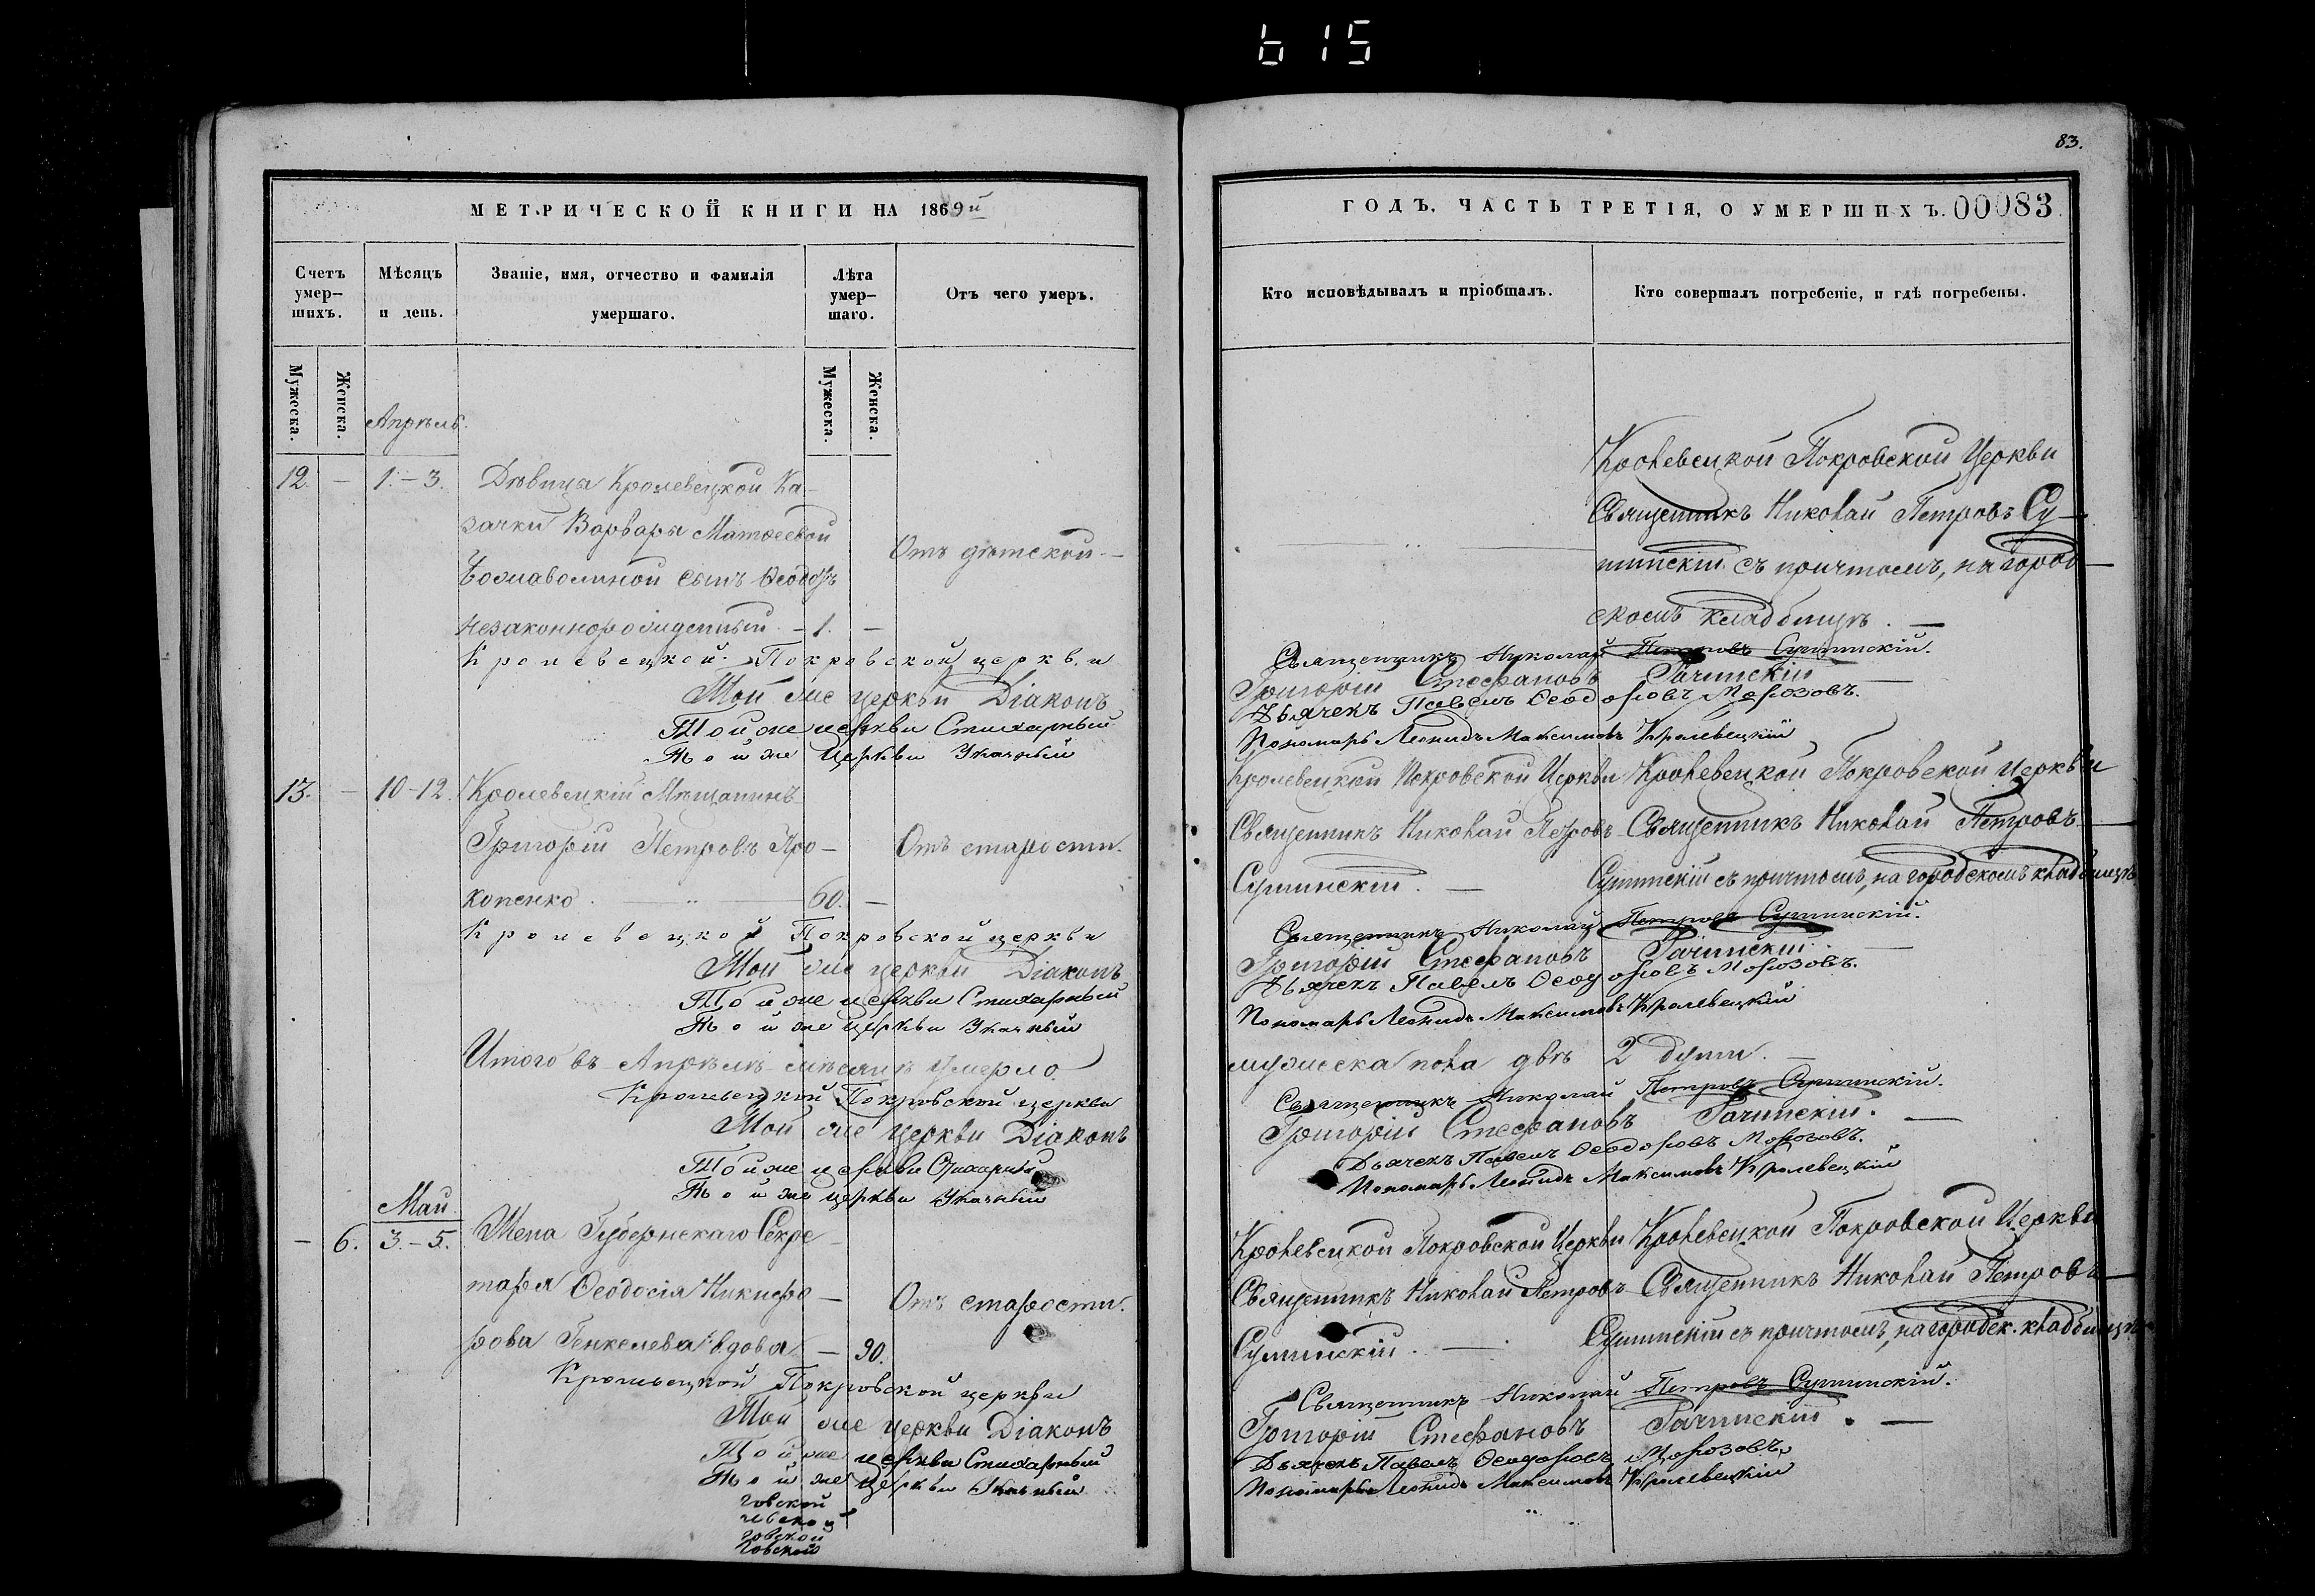 615
83.
МЕТРИЧЕСКОЙ КНИГИ НА 1869й
Счетъ умер-
шихъ.
Мѣсяцъ
и день.
Званіе, имя, отчество и фамилія
умершаго.
Лѣта
умер-
шаго.
Отъ чего умеръ.
Мужеска.
Женска.
Мужеска.
Женска.
Апрѣль.
12. — 1.-3. Дѣвица Кролевецкой Ка-
зачки Варвары Матѳеевой
сынъ Ѳеодоръ
Отъ дѣтской.—
незаконнорожденный — 1. —
Кролевецкой Покровской церкви
Той же церкви Діаконъ
Той же церкви Стихарный
Той же церкви Указный
13. — 10-12. Кролевецкій Мѣщанинъ
Григорій Петровъ Про-
Отъ старости.
копенко. — 60. —
Кролевецкой Покровской церкви
Той же церкви Діаконъ
Той же церкви Стихарный
Той же церкви Указный
Итого въ Апрѣлѣ мѣсяцѣ умерло
Кролевецкой Покровской церкви
Той же церкви Діаконъ
Той же церкви Стихарный
Той же церкви Указный
Май
— 6. 3.-5. Жена Губернскаго Секре-
таря Ѳеодосія Никифо-
Отъ старости.
рова вдова — 90.
Кролевецкой Покровской церкви
Той же церкви Діаконъ
Той же церкви Стихарный
Той же церкви Указный
говской
говской
говской
ГОДЪ, ЧАСТЬ ТРЕТІЯ, О УМЕРШИХЪ. 00083.
Кто исповѣдывалъ и пріобщалъ.
Кто совершалъ погребеніе, и гдѣ погребены.
Кролевецкой Покровской Церкви
Священникъ Николай Петровъ Су-
шинскій съ причтомъ, на город-
скомъ кладбищѣ. —
Священникъ Николай Петровъ Сушинскій.
Григорій Стефановъ Рачинскій —
Дьячекъ Павелъ Ѳеодоровъ Морозовъ.
Пономарь Леонидъ Максимовъ Кролевецкій
Кролевецкой Покровской Церкви
Священникъ Николай Петровъ
Сушинскій. —
Кролевецкой Покровской церкви
Священникъ Николай Петровъ
Сушинскій съ причтомъ, на городскомъ кладбищѣ
Священникъ Николай Петровъ Сушинскій.
Григорій Стефановъ Рачинскій. —
Дьячекъ Павелъ Ѳеодоровъ Морозовъ.
Пономарь Леонидъ Максимовъ Кролевецкій
мужеска пола двѣ 2 души. —
Священникъ Николай Петровъ Сушинскій.
Григорій Стефановъ Рачинскій. —
Дьячекъ Павелъ Ѳеодоровъ Морозовъ.
Пономарь Леонидъ Максимовъ Кролевецкій
Кролевецкой Покровской Церкви
Священникъ Николай Петровъ
Сушинскій. —
Кролевецкой Покровской Церкви
Священникъ Николай Петровъ
Сушинскій съ причтомъ, на городск. кладбищѣ
Священникъ Николай Петровъ Сушинскій.
Григорій Стефановъ Рачинскій. —
Дьячекъ Павелъ Ѳеодоровъ Морозовъ.
Пономарь Леонидъ Максимовъ Кролевецкій